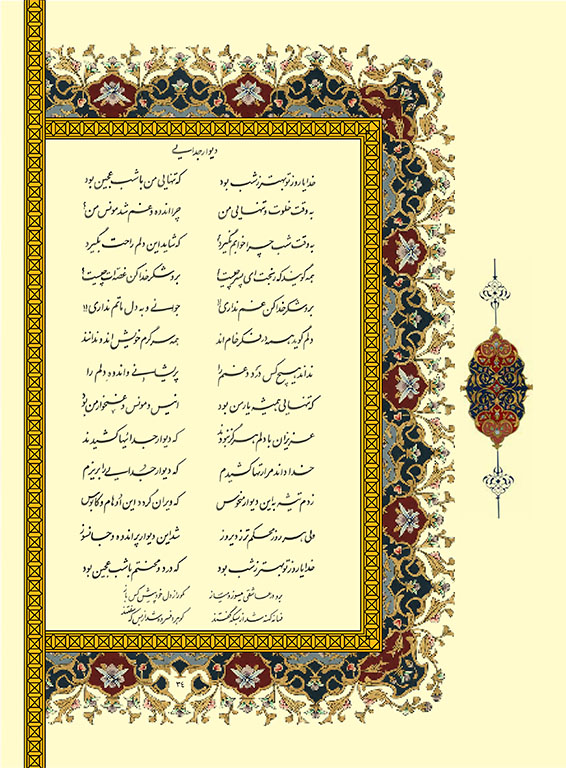 دیوار جدایی
خدایا روز تو بهتر ز شب بود که تنهایی من با شب عجین بود
به وقت خلوت و تنهایی من چرا اندوه و غم شد مونس من؟
به وقت شب چرا خوابم نگیرد؟ که شاید این دلم راحت بگیرد
همه گویند که رنجت ای پسر چیست؟ برو شکر خدا کن غصه‌ات چیست؟
برو شکر خدا کن غم نداری!! جوانی و به دل ماتم نداری!!
دلم گوید همه در فکر خام اند همه سرگرم خویش اند و ندانند
نداند هیچ کس درد و غمم را پریشانی و اندوه دلم را
که تنهایی همیشه یار من بود انیس و مونس و غمخوار من بود
عزیزان با دلم هرگز نبودند که دیوار جدائیها کشیدند
خدا داند مرارتها کشیدم که دیوار جدایی را بریزم
زدم تیشه به این دیوار منحوس که ویران گردد این اوهام و کابوس
ولی هر روز محکم تر ز دیروز شد این دیوار پر اندوه و جانسوز
خدایا روز تو بهتر ز شب بود که درد و محنتم با شب عجین بود
بود در عاشقی هر سوز و ساز که راز دل خود پیش کس
فسانه گشته شد از بسکه گفتند
۳۴